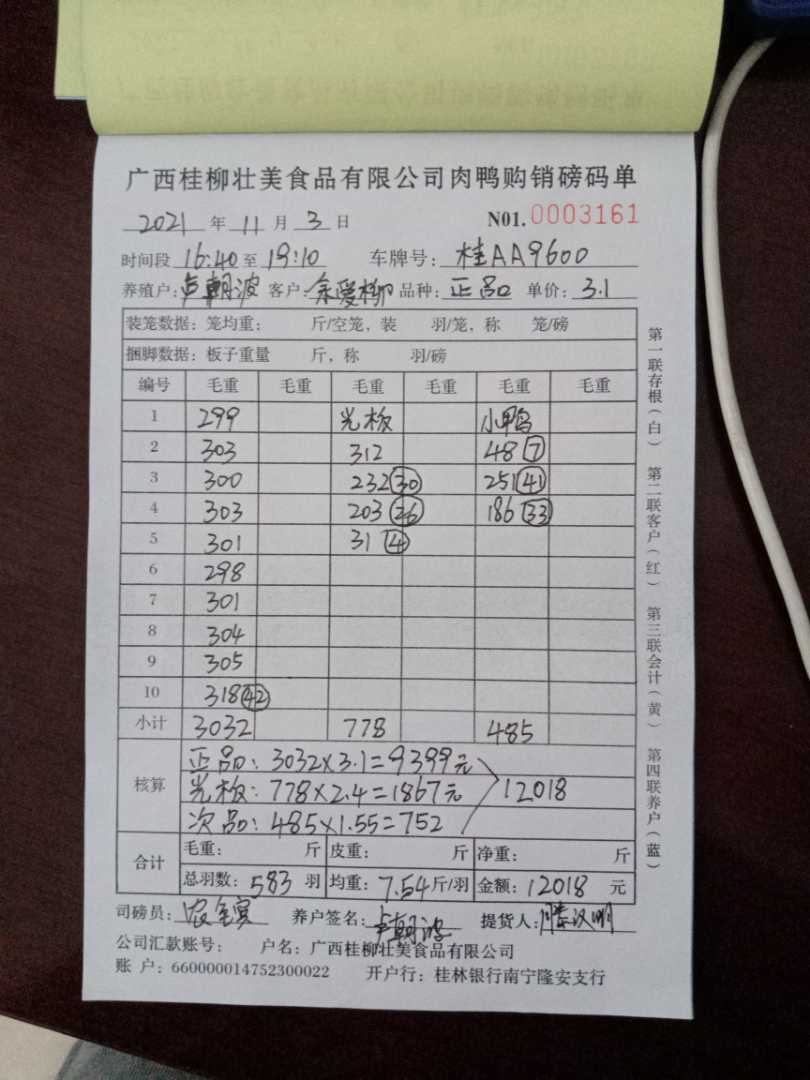 广西桂柳壮美食品有限公司肉鸭购销磅码单
2021 年 11 月 3 日 N01. 0003161
时间段 16:40 至 19:10 车牌号: 桂AA9600
养殖户: 卢朝波 客户: 余爱柳 品种: 正品 单价: 3.1
装笼数据: 笼均重: 斤/空笼, 装 羽/笼, 称 笼/磅
捆脚数据: 板子重量 斤, 称 羽/磅
编号 毛重 毛重 毛重 毛重 毛重 毛重
1 299 光板 小鸭
2 303 312 48 7
3 300 232 30 251 41
4 303 203 26 186 33
5 301 31 4
6 298
7 301
8 304
9 305
10 318 42
小计 3032 778 485
核算 正品: 3032×3.1=9399元
光板: 778×2.4=1867元 12018
次品: 485×1.55=752
合计 毛重: 斤 皮重: 斤 净重: 斤
总羽数: 583 羽 均重: 7.54 斤/羽 金额: 12018 元
司磅员: 养户签名: 卢朝波 提货人:
公司汇款账号: 户名: 广西桂柳壮美食品有限公司
账 户: 660000014752300022 开户行: 桂林银行南宁隆安支行
第一联存根(白) 第二联客户(红) 第三联会计(黄) 第四联养户(蓝)